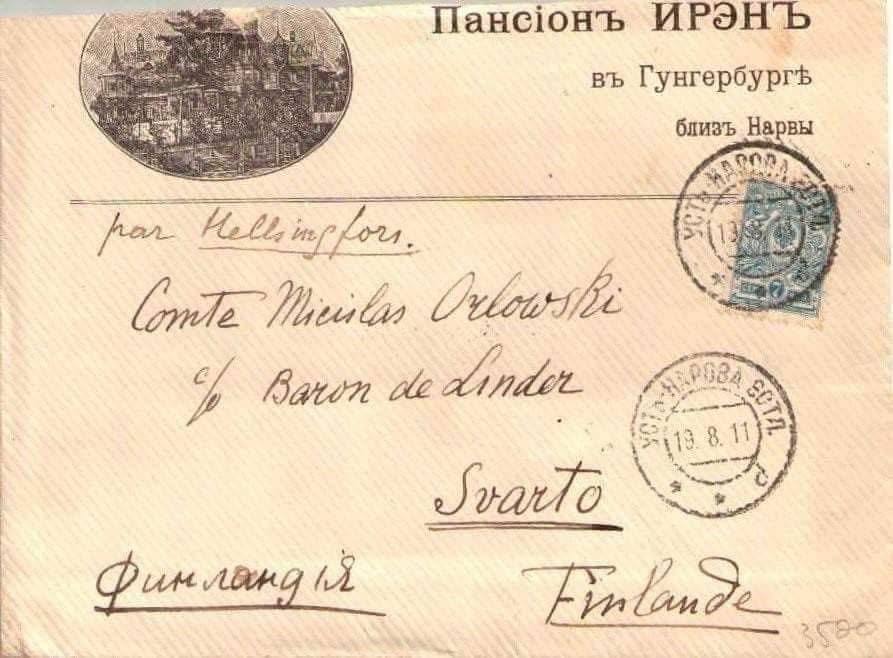 Пансіонъ ИРЭНЪ
въ Гунгербургѣ
близъ Нарвы
УСТЬ-НАРОВА ЭСТЛ.
par Hellsingfors.
Comte Micislas Orlowski
c/o Baron de Linder
УСТЬ-НАРОВА ЭСТЛ.
19.8.11
d
Svarto
Финландія
Finlande
3500